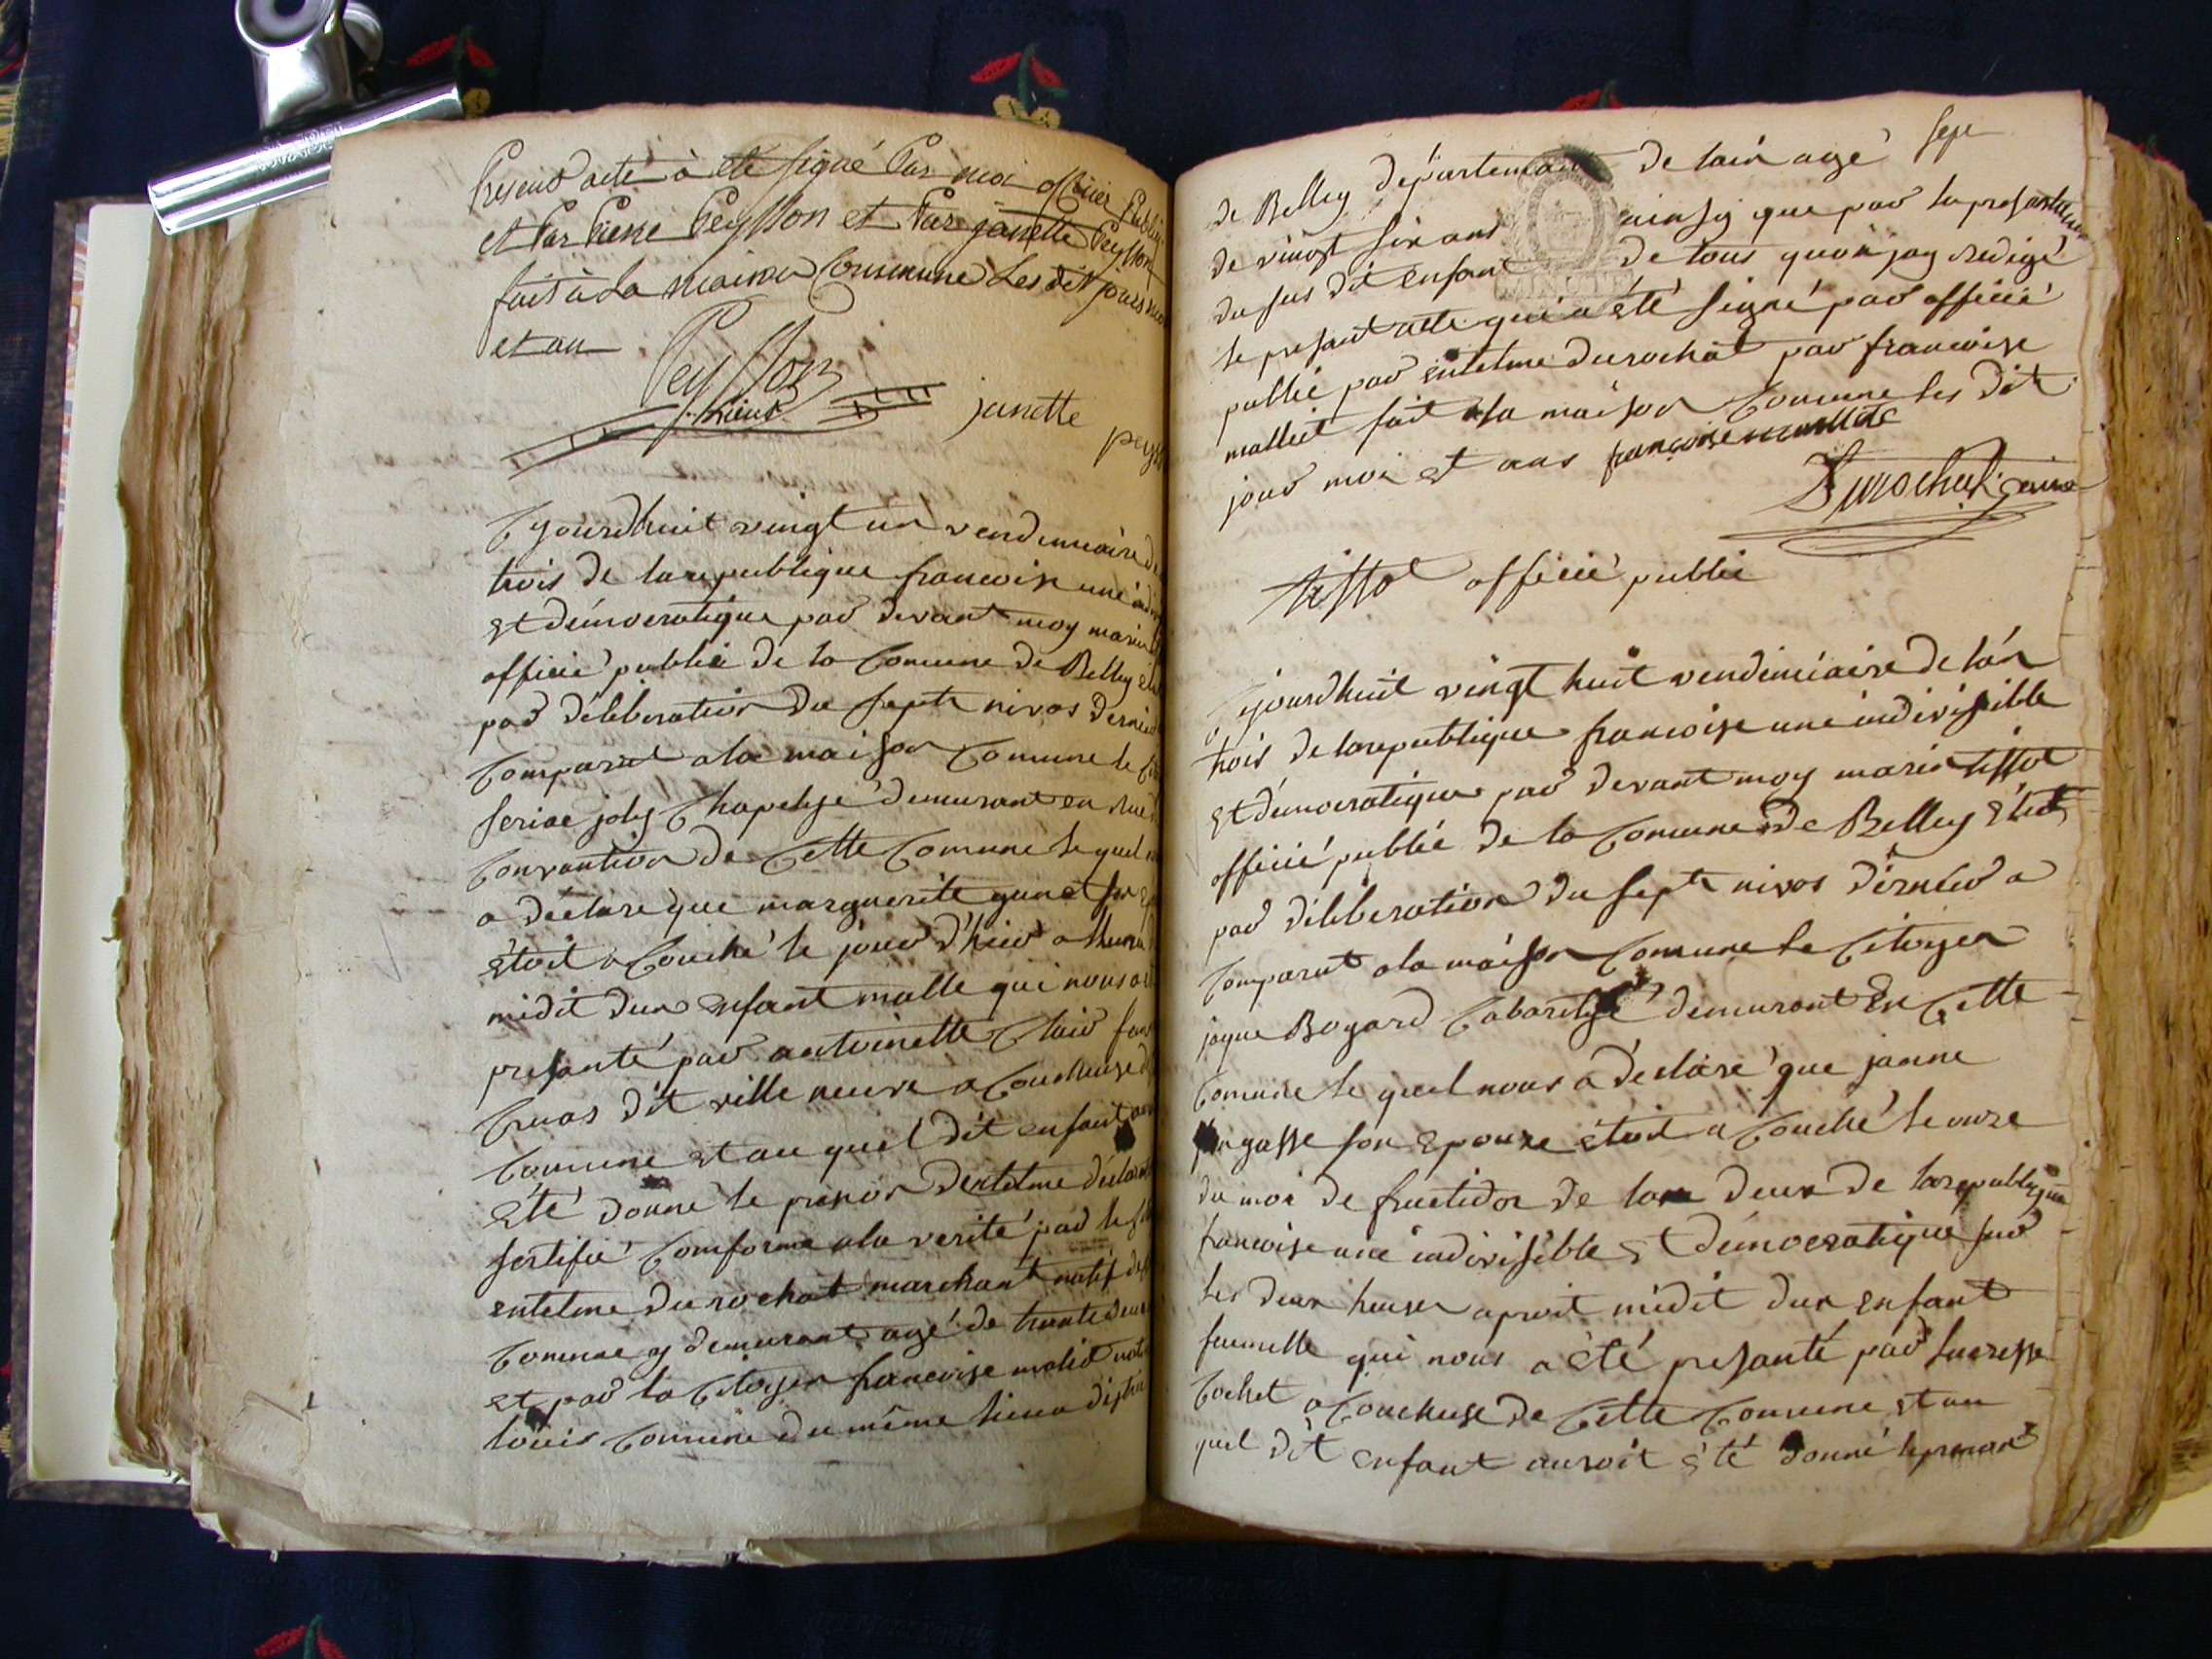 present acte à été signé Par moi officier Public
et Par Pierre Peysson et Par janette Peysson
fait à la maison Commune Les dit jours mois
et an
Peysson
janette
peyss
Cejourdhuit vingt un vendemiaire de
trois de la republique francoise une ind
et démocratique par devant moy marin
officié publié de la Comune de Belley élu
par déliberation du sept nivos dernier
Comparut a la maison Comune le
joly Chapelyé demurant en rue
Convantion de Cette Comune le quel
a déclaré que marguerite son
étoit a Couché le jour d'hier a
midit dun enfant malle qui nous a
presanté par antoinette Clair
Cruas dit ville neuve a Coucheuse
Comune et au quel dit enfant
été donné le prenon dentelme déclara
sertifié Comforme a la verité par le
entelme durochat marchant natif de
Comune y demurant agé de trante deux
et par la Citoyen francoise molliet
louis Comune du même lieux distri
sept
de Belley département de lain agé
de vingt six ans ainsy que par la presantation
du sus dit enfant de tous quoi jay redigé
MINUTE
le presant acte qui a été signé par officié
publié par entelme durochat par francoise
molliet fait a la maison Comune les dit
jour moi et ans françoise
Durochat
tissot officié publié
Cejourdhuit vingt huit vendimiaire de lan
trois de la republique francoise une indivisible
et démocratique par devant moy marin tissot
officié publié de la Comune de Belley élut
par déliberation du sept nivos dernier a
Comparut a la maison Comune le Citoyen
jaque Bogard Cabaretyé demurant En Cette
Comune le quel nous a déclaré que janne
son epouse étoit a Couché le onze
du moi de fructidor de lan deux de la republique
francoise une indivisible et démocratique sur
les deux heures aproit midit dun enfant
fumelle qui nous a été presanté par
Cochet a Coucheuse de Cette Comune et au
quel dit enfant auroit été donné le prenon